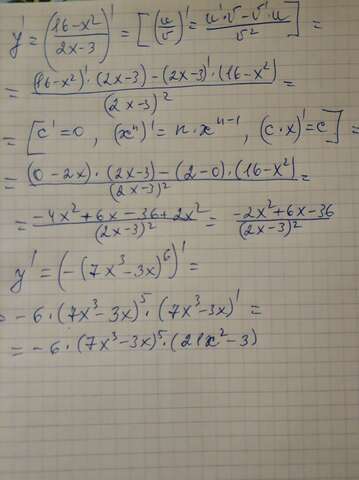 y' = ((16-x²)/(2x-3))' = [(u/v)' = (u'v - v'u)/v²] =
= ((16-x²)'·(2x-3) - (2x-3)'·(16-x²))/(2x-3)² =
= [c' = 0, (xⁿ)' = n·xⁿ⁻¹, (c·x)' = c] =
= ((0-2x)·(2x-3) - (2-0)·(16-x²))/(2x-3)² =
= (-4x²+6x-36+2x²)/(2x-3)² = (-2x²+6x-36)/(2x-3)²
y' = (-(7x³-3x)⁶)' =
= -6·(7x³-3x)⁵·(7x³-3x)' =
= -6·(7x³-3x)⁵·(21x²-3)